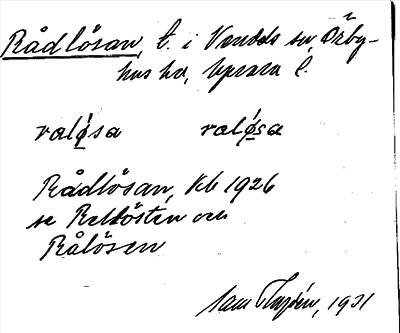 Rådlösan, t. i Vendels sn, Örby-
hus hd, Uppsala l.
ralǿsa ralǿsa
Rådlösan, Kb 1926
se Rållösten och
Rålösen
1931